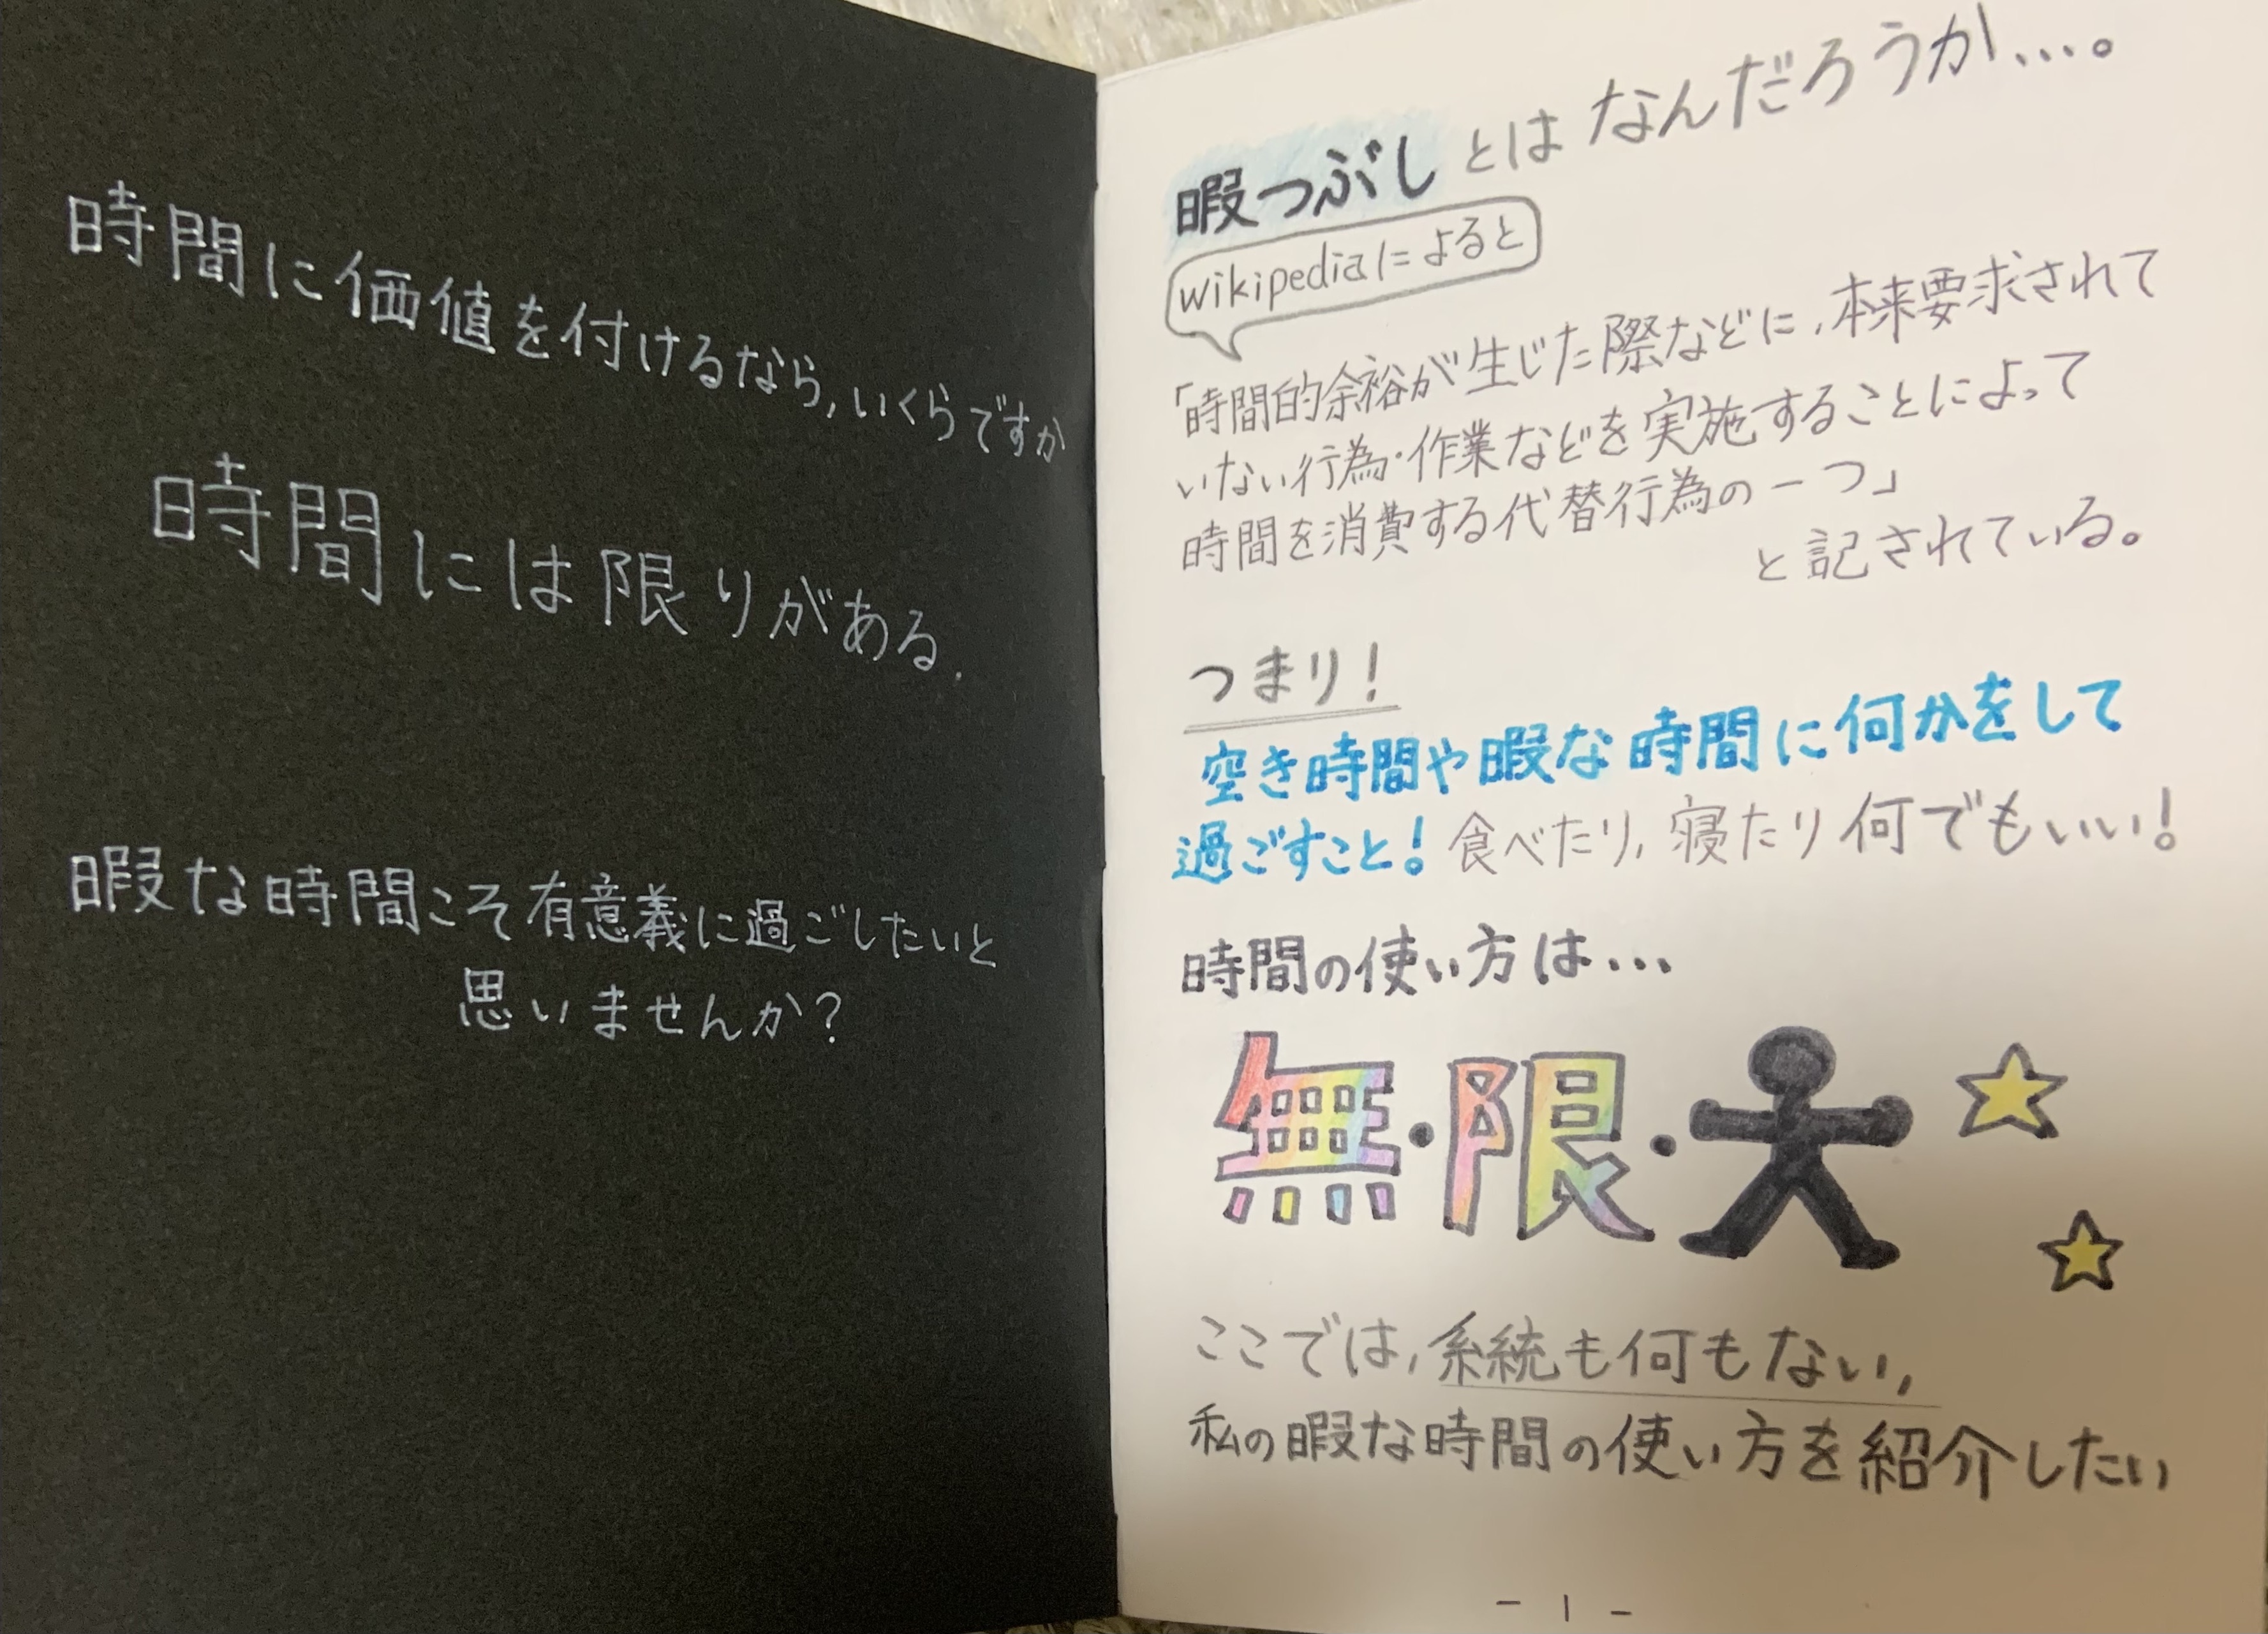 時間に価値を付けるなら,いくらですか
時間には限りがある.
暇な時間こそ有意義に過ごしたいと
思いませんか?
暇つぶしとはなんだろうか…。
wikipediaによると
「時間的余裕が生じた際などに,本来要求されて
いない行為・作業などを実施することによって
時間を消費する代替行為の一つ」
と記されている。
つまり!
空き時間や暇な時間に何かをして
過ごすこと!食べたり,寝たり何でもいい!
時間の使い方は…
無・限・大
ここでは,系統も何もない,
私の暇な時間の使い方を紹介したい
- 1 -